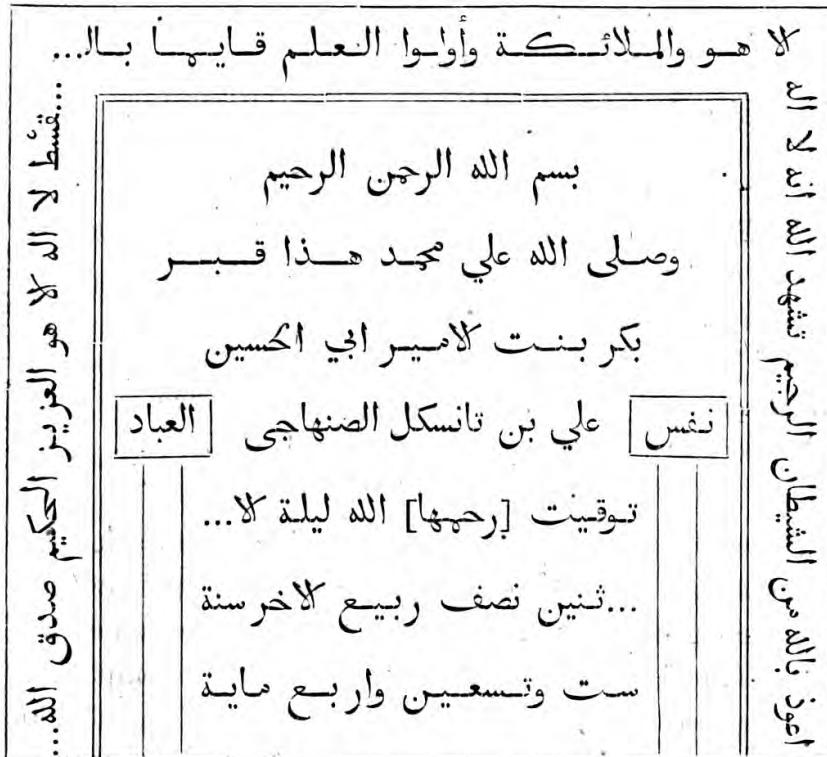 اعوذ بالله من الشيطان الرجيم تشهد الله انه لا اله
لا هو والملائكة وأولوا العلم قايماً بال...
...قسط لا اله لا هو العزيز الحكيم صدق الله...
بسم الله الرحمن الرحيم
وصلى الله علي محمد هذا قبر
بكر بنت لامير ابي الحسين
نفس علي بن تانسكل الصنهاجى العباد
توقيت [رحمها] الله ليلة لا...
...ثنين نصف ربيع لاخر سنة
ست وتسعين واربع ماية